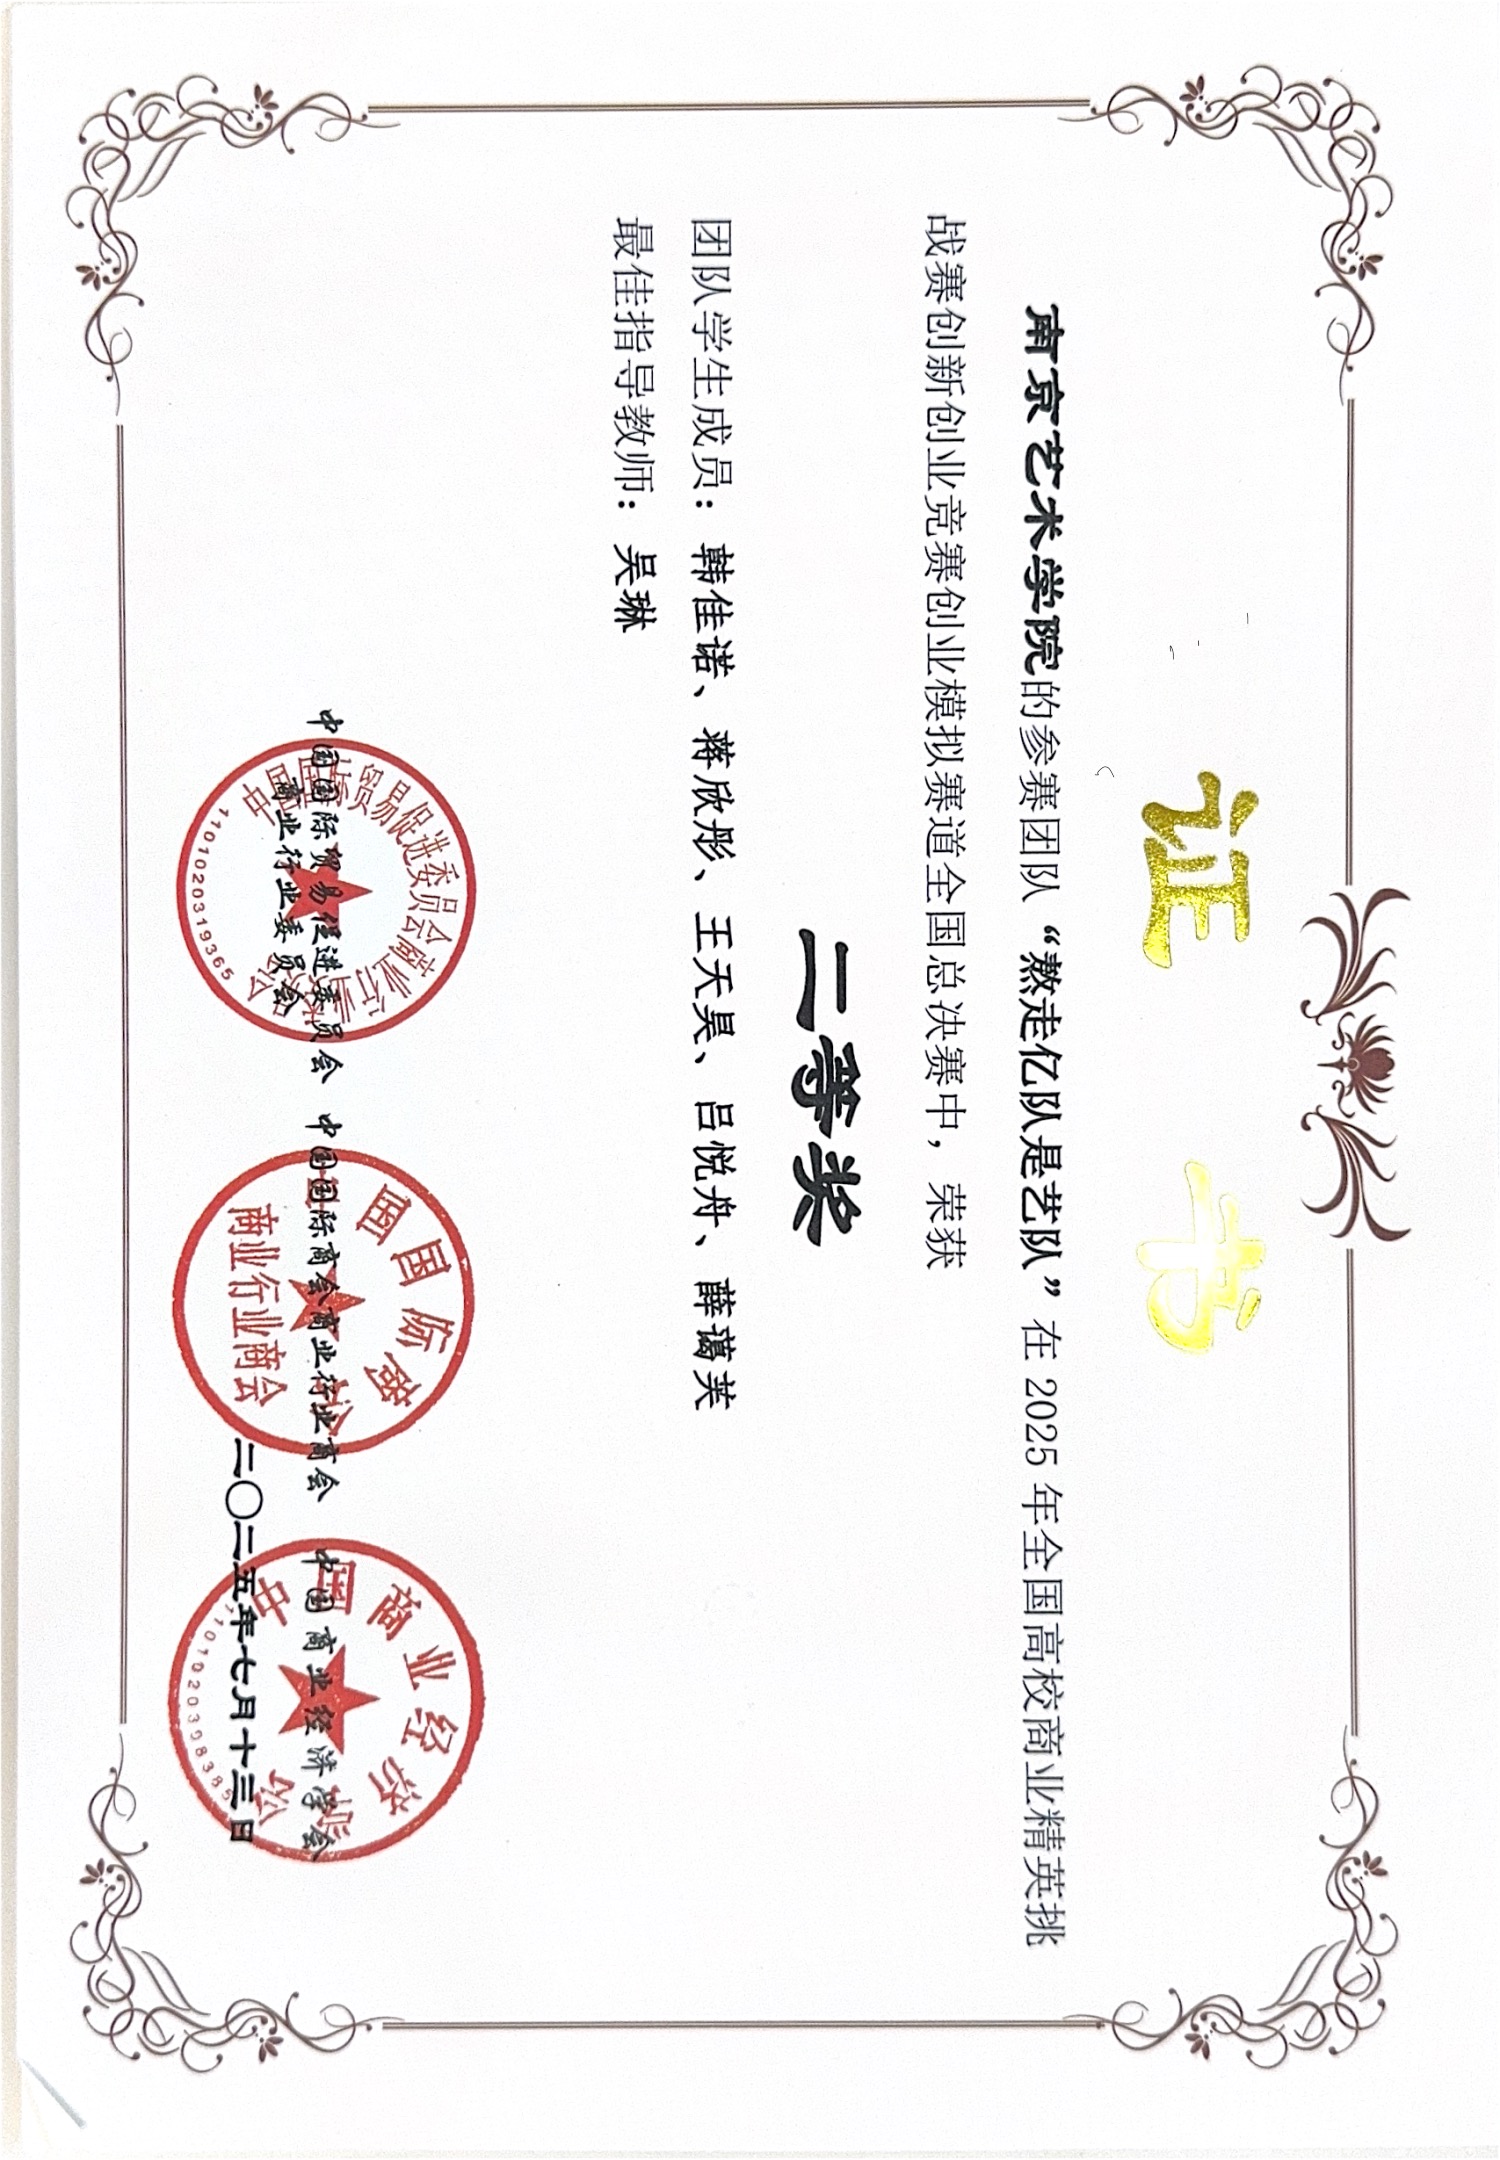 证书
南京艺术学院的参赛团队“熬走亿队是艺队”在 2025 年全国高校商业精英挑
战赛创新创业竞赛创业模拟赛道全国总决赛中，荣获
二等奖
团队学生成员：韩佳诺、蒋欣彤、王天昊、吕悦舟、薛蔼芙
最佳指导教师：吴琳
中国国际贸易促进委员会 中国国际商会商业行业商会 中国商业经济学会
商业行业委员会
二〇二五年七月十三日
中国国际贸易促进委员会商业行业委员会
1101020319365
中国国际商会
商业行业商会
中国商业经济学会